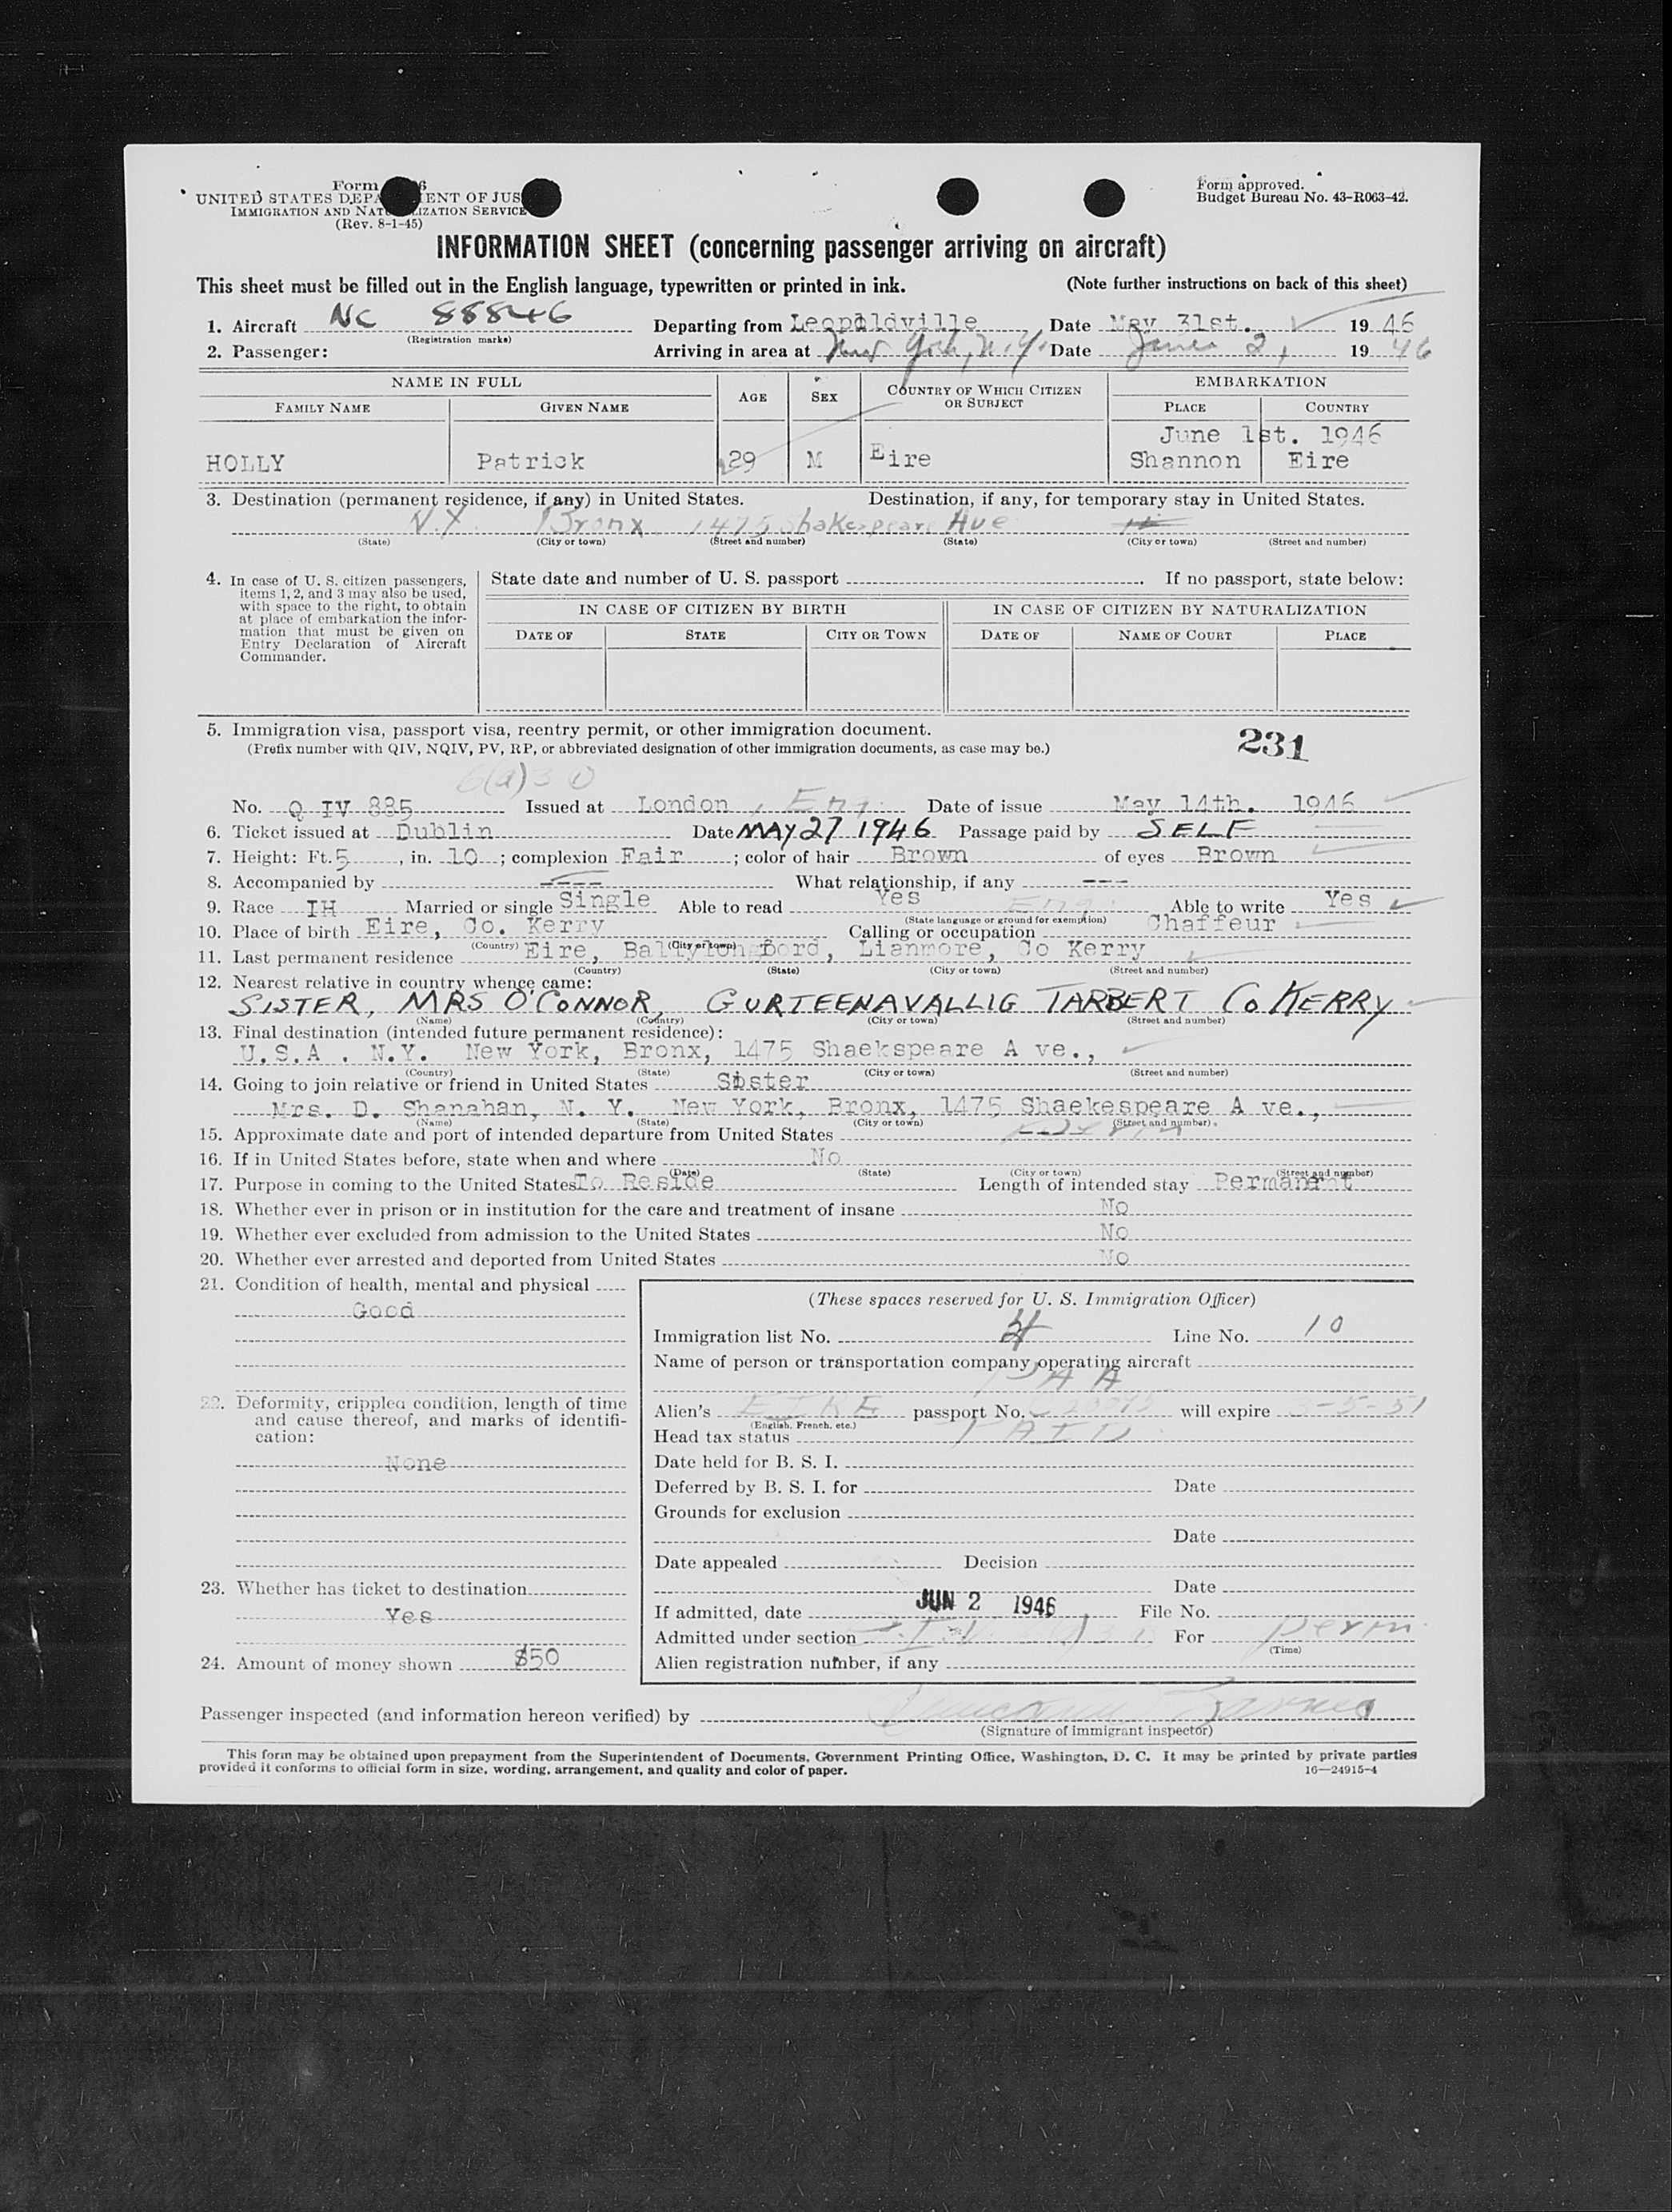 Form
UNITED STATES DEPA ENT OF JUS
IMMIGRATION AND NATU IZATION SERVICE
(Rev. 8-1-45)
Form approved.
Budget Bureau No. 43-R063-42.
INFORMATION SHEET (concerning passenger arriving on aircraft)
This sheet must be filled out in the English language, typewritten or printed in ink. (Note further instructions on back of this sheet)
1. Aircraft NC 88846 Departing from Leopoldville Date May 31st. 1946
(Registration marks)
2. Passenger: Arriving in area at New York, N.Y. Date June 2, 1946
NAME IN FULL AGE SEX COUNTRY OF WHICH CITIZEN OR SUBJECT EMBARKATION
FAMILY NAME GIVEN NAME PLACE COUNTRY
June 1st. 1946
HOLLY Patrick 29 M Eire Shannon Eire
3. Destination (permanent residence, if any) in United States. Destination, if any, for temporary stay in United States.
N.Y. Bronx 1475 Shakespeare Ave
(State) (City or town) (Street and number) (State) (City or town) (Street and number)
4. In case of U. S. citizen passengers, items 1, 2, and 3 may also be used, with space to the right, to obtain at place of embarkation the information that must be given on Entry Declaration of Aircraft Commander.
State date and number of U. S. passport If no passport, state below:
IN CASE OF CITIZEN BY BIRTH IN CASE OF CITIZEN BY NATURALIZATION
DATE OF STATE CITY OR TOWN DATE OF NAME OF COURT PLACE
5. Immigration visa, passport visa, reentry permit, or other immigration document.
(Prefix number with QIV, NQIV, PV, RP, or abbreviated designation of other immigration documents, as case may be.)
231
6(a)3
No. Q IV 885 Issued at London, Eng. Date of issue May 14th. 1946
6. Ticket issued at Dublin Date MAY 27 1946 Passage paid by SELF
7. Height: Ft. 5, in. 10; complexion Fair; color of hair Brown of eyes Brown
8. Accompanied by ---- What relationship, if any ---
9. Race IH Married or single Single Able to read Yes Eng. Able to write Yes
(State language or ground for exemption)
10. Place of birth Eire, Co. Kerry Calling or occupation Chaffeur
(Country) (City or town)
11. Last permanent residence Eire, Ballylongford, Lianmore, Co Kerry
(Country) (State) (City or town) (Street and number)
12. Nearest relative in country whence came:
SISTER, MRS O'CONNOR, GURTEENAVALLIG TARBERT CO KERRY
(Name) (Country) (City or town) (Street and number)
13. Final destination (intended future permanent residence):
U.S.A. N.Y. New York, Bronx, 1475 Shaekspeare A ve.,
(Country) (State) (City or town) (Street and number)
14. Going to join relative or friend in United States Sister
Mrs. D. Shanahan, N. Y. New York, Bronx, 1475 Shaekespeare A ve.,
(Name) (State) (City or town) (Street and number)
15. Approximate date and port of intended departure from United States
16. If in United States before, state when and where No
(Date) (State) (City or town) (Street and number)
17. Purpose in coming to the United States To Reside Length of intended stay Permanent
18. Whether ever in prison or in institution for the care and treatment of insane No
19. Whether ever excluded from admission to the United States No
20. Whether ever arrested and deported from United States No
21. Condition of health, mental and physical
Good
22. Deformity, crippled condition, length of time and cause thereof, and marks of identification:
None
23. Whether has ticket to destination
Yes
24. Amount of money shown $50
(These spaces reserved for U. S. Immigration Officer)
Immigration list No. 4 Line No. 10
Name of person or transportation company operating aircraft
PAA
Alien's EIRE passport No. will expire 3-5-51
(English, French, etc.)
Head tax status PAID
Date held for B. S. I.
Deferred by B. S. I. for Date
Grounds for exclusion
Date
Date appealed Decision
Date
If admitted, date JUN 2 1946 File No.
Admitted under section For perm
(Time)
Alien registration number, if any
Passenger inspected (and information hereon verified) by
(Signature of immigrant inspector)
This form may be obtained upon prepayment from the Superintendent of Documents, Government Printing Office, Washington, D. C. It may be printed by private parties
provided it conforms to official form in size, wording, arrangement, and quality and color of paper. 16—24915-4